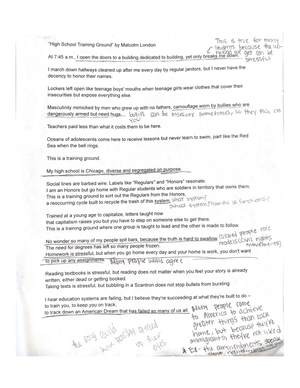 "High School Training Ground" by Malcolm London
This is true for many
students because the
we get can be
stressful
At 7:45 a.m., I open the doors to a building dedicated to building, yet only breaks me down.
I march down hallways cleaned up after me every day by regular janitors, but I never have the
decency to honor their names.
Lockers left open like teenage boys' mouths when teenage girls wear clothes that cover their
insecurities but expose everything else.
Masculinity mimicked by men who grew up with no fathers, camouflage worn by bullies who are
dangerously armed but need hugs.
bullies can be insecure sometimes, so they
you
Teachers paid less than what it costs them to be here.
Oceans of adolescents come here to receive lessons but never learn to swim, part like the Red
Sea when the bell rings.
This is a training ground.
My high school is Chicago, diverse and segregated on purpose.
Social lines are barbed wire. Labels like "Regulars" and "Honors" resonate.
I am an Honors but go home with Regular students who are soldiers in territory that owns them.
This is a training ground to sort out the Regulars from the Honors,
a reoccurring cycle built to recycle the trash of this system.
what system?
Trained at a young age to capitalize, letters taught now
that capitalism raises you but you have to step on someone else to get there.
This is a training ground where one group is taught to lead and the other is made to follow.
No wonder so many of my people spit bars, because the truth is hard to swallow.
The need for degrees has left so many people frozen.
Homework is stressful, but when you go home every day and your home is work, you don't want
to pick up any assignments.
Many people would agree
Reading textbooks is stressful, but reading does not matter when you feel your story is already
written, either dead or getting booked.
Taking tests is stressful, but bubbling in a Scantron does not stop bullets from bursting.
I hear education systems are failing, but I believe they're succeeding at what they're built to do –
to train you, to keep you on track,
to track down an American Dream that has failed so many of us all.
Many people come
to America to achieve
greater things than back
home, but because they're
immigrants they're not liked